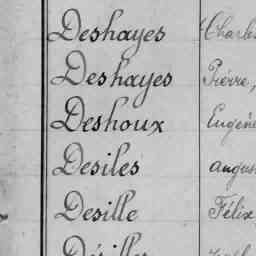 Deshayes Charles
Deshayes Pierre,
Deshoux Eugène
Desiles
Desille Félix